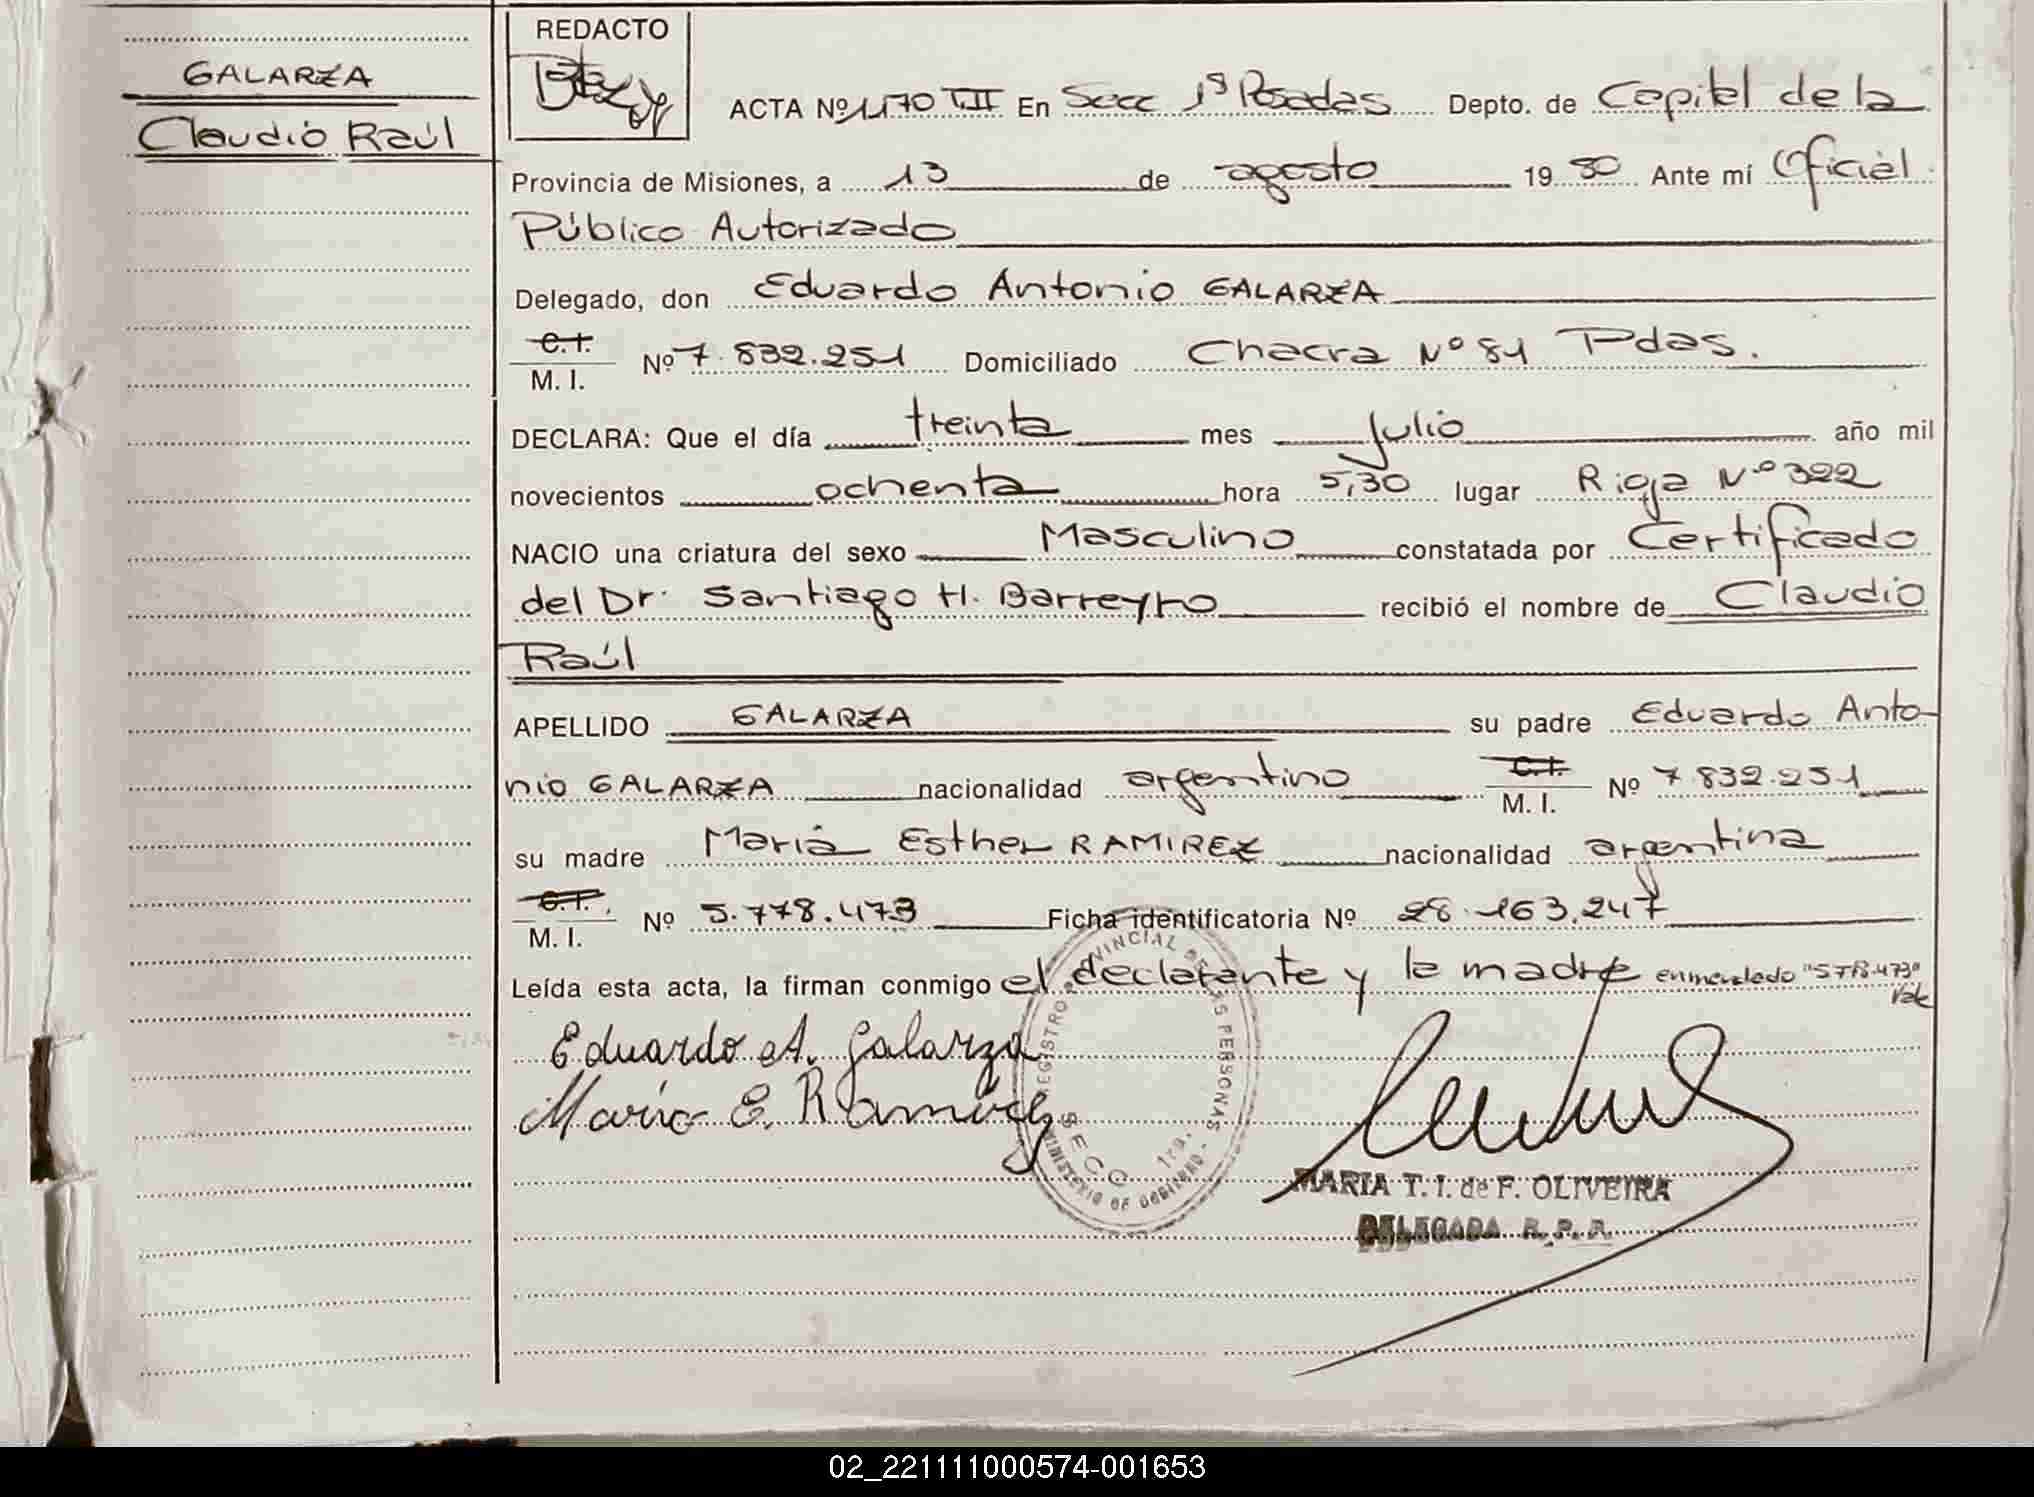 GALARZA
Claudio Raúl
REDACTO
ACTA Nº 1170 T.II En Secc 1ª Posadas Depto. de Capital de la
Provincia de Misiones, a 13 de agosto 19 80 Ante mí Oficial
Público Autorizado
Delegado, don Eduardo Antonio GALARZA
C.I.
M. I. Nº 7.832.251 Domiciliado Chacra Nº 81 Pdas.
DECLARA: Que el día treinta mes julio año mil
novecientos ochenta hora 5,30 lugar Rioja Nº 322
NACIO una criatura del sexo Masculino constatada por Certificado
del Dr. Santiago H. Barreyro recibió el nombre de Claudio
Raúl
APELLIDO GALARZA su padre Eduardo Anto-
nio GALARZA nacionalidad argentino C.I. M. I. Nº 7.832.251
su madre María Esther RAMIREZ nacionalidad argentina
C.I.
M. I. Nº 5.778.473 Ficha identificatoria Nº 28.163.247
Leída esta acta, la firman conmigo el declarante y la madre enmendado "5.778.473"
Vale
Eduardo A. Galarza
Maria E. Ramirez
REGISTRO PROVINCIAL DE LAS PERSONAS
SECC. 1ra.
MINISTERIO DE GOBIERNO
MARIA T. I. de F. OLIVEIRA
DELEGADA R. P. P.
02_221111000574-001653